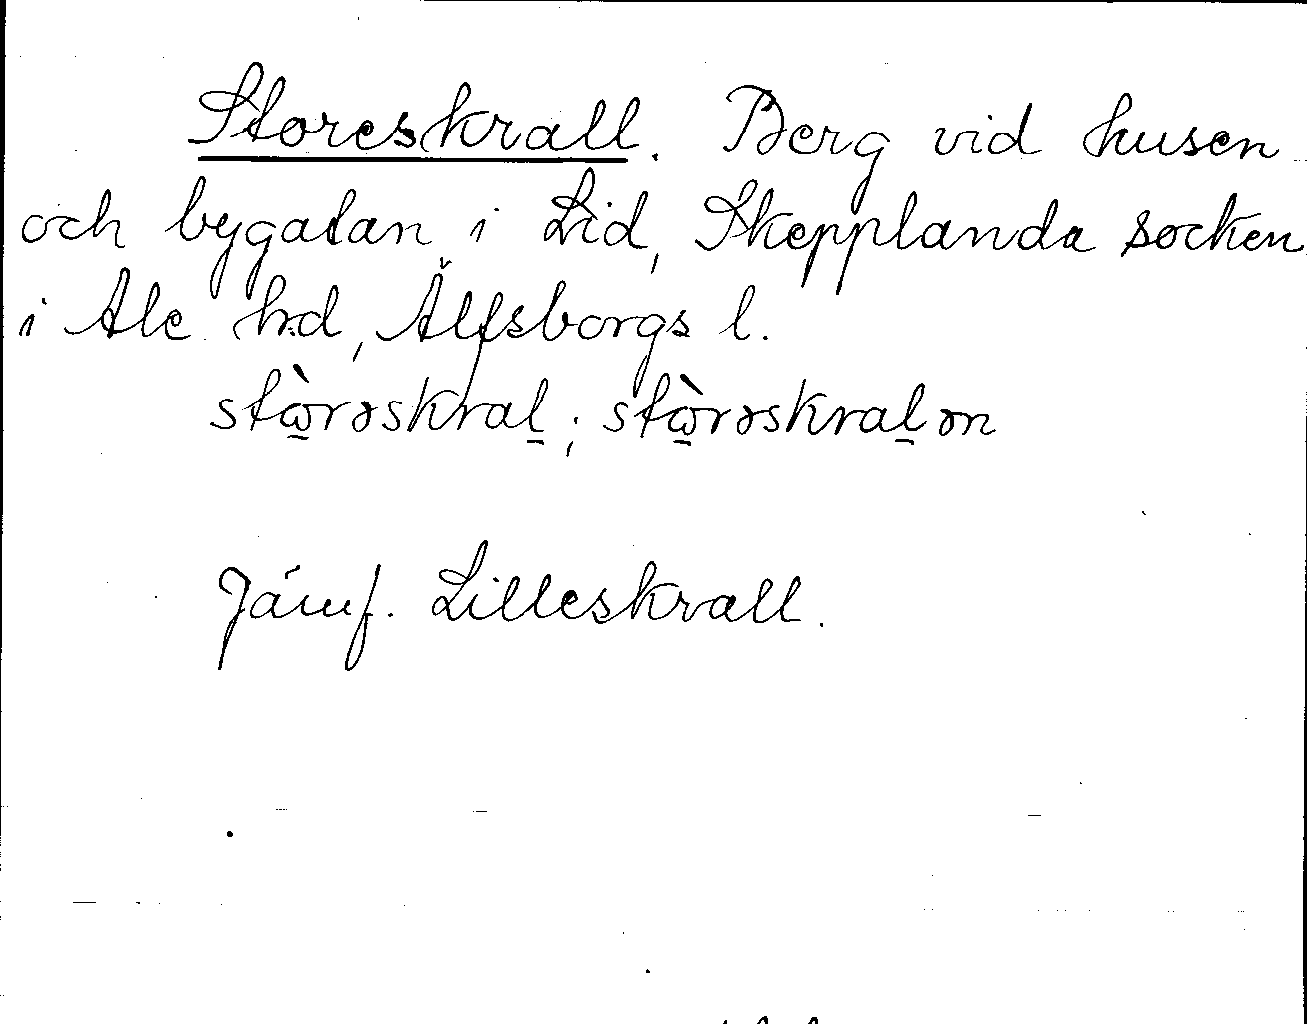 Storeskrall. Berg vid husen
och bygatan i Lid, Skepplanda socken
i Ale hd, Älfsborgs l.
stὼ̠rəskral̠; stὼ̠rəskral̠ən
Jämf. Lilleskrall.